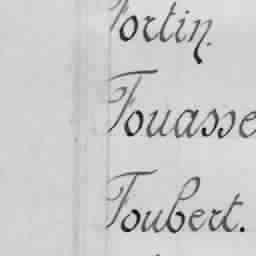 Fortin.
Fouasse
Foubert.